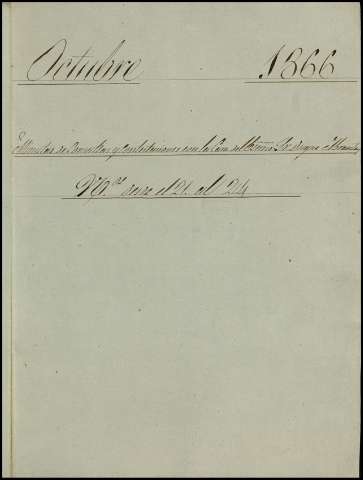 Octubre 1866
Minutas de Consultas y Contestaciones con la Casa del Exmo. Sr. Duque
N.os desde el 21 al 24